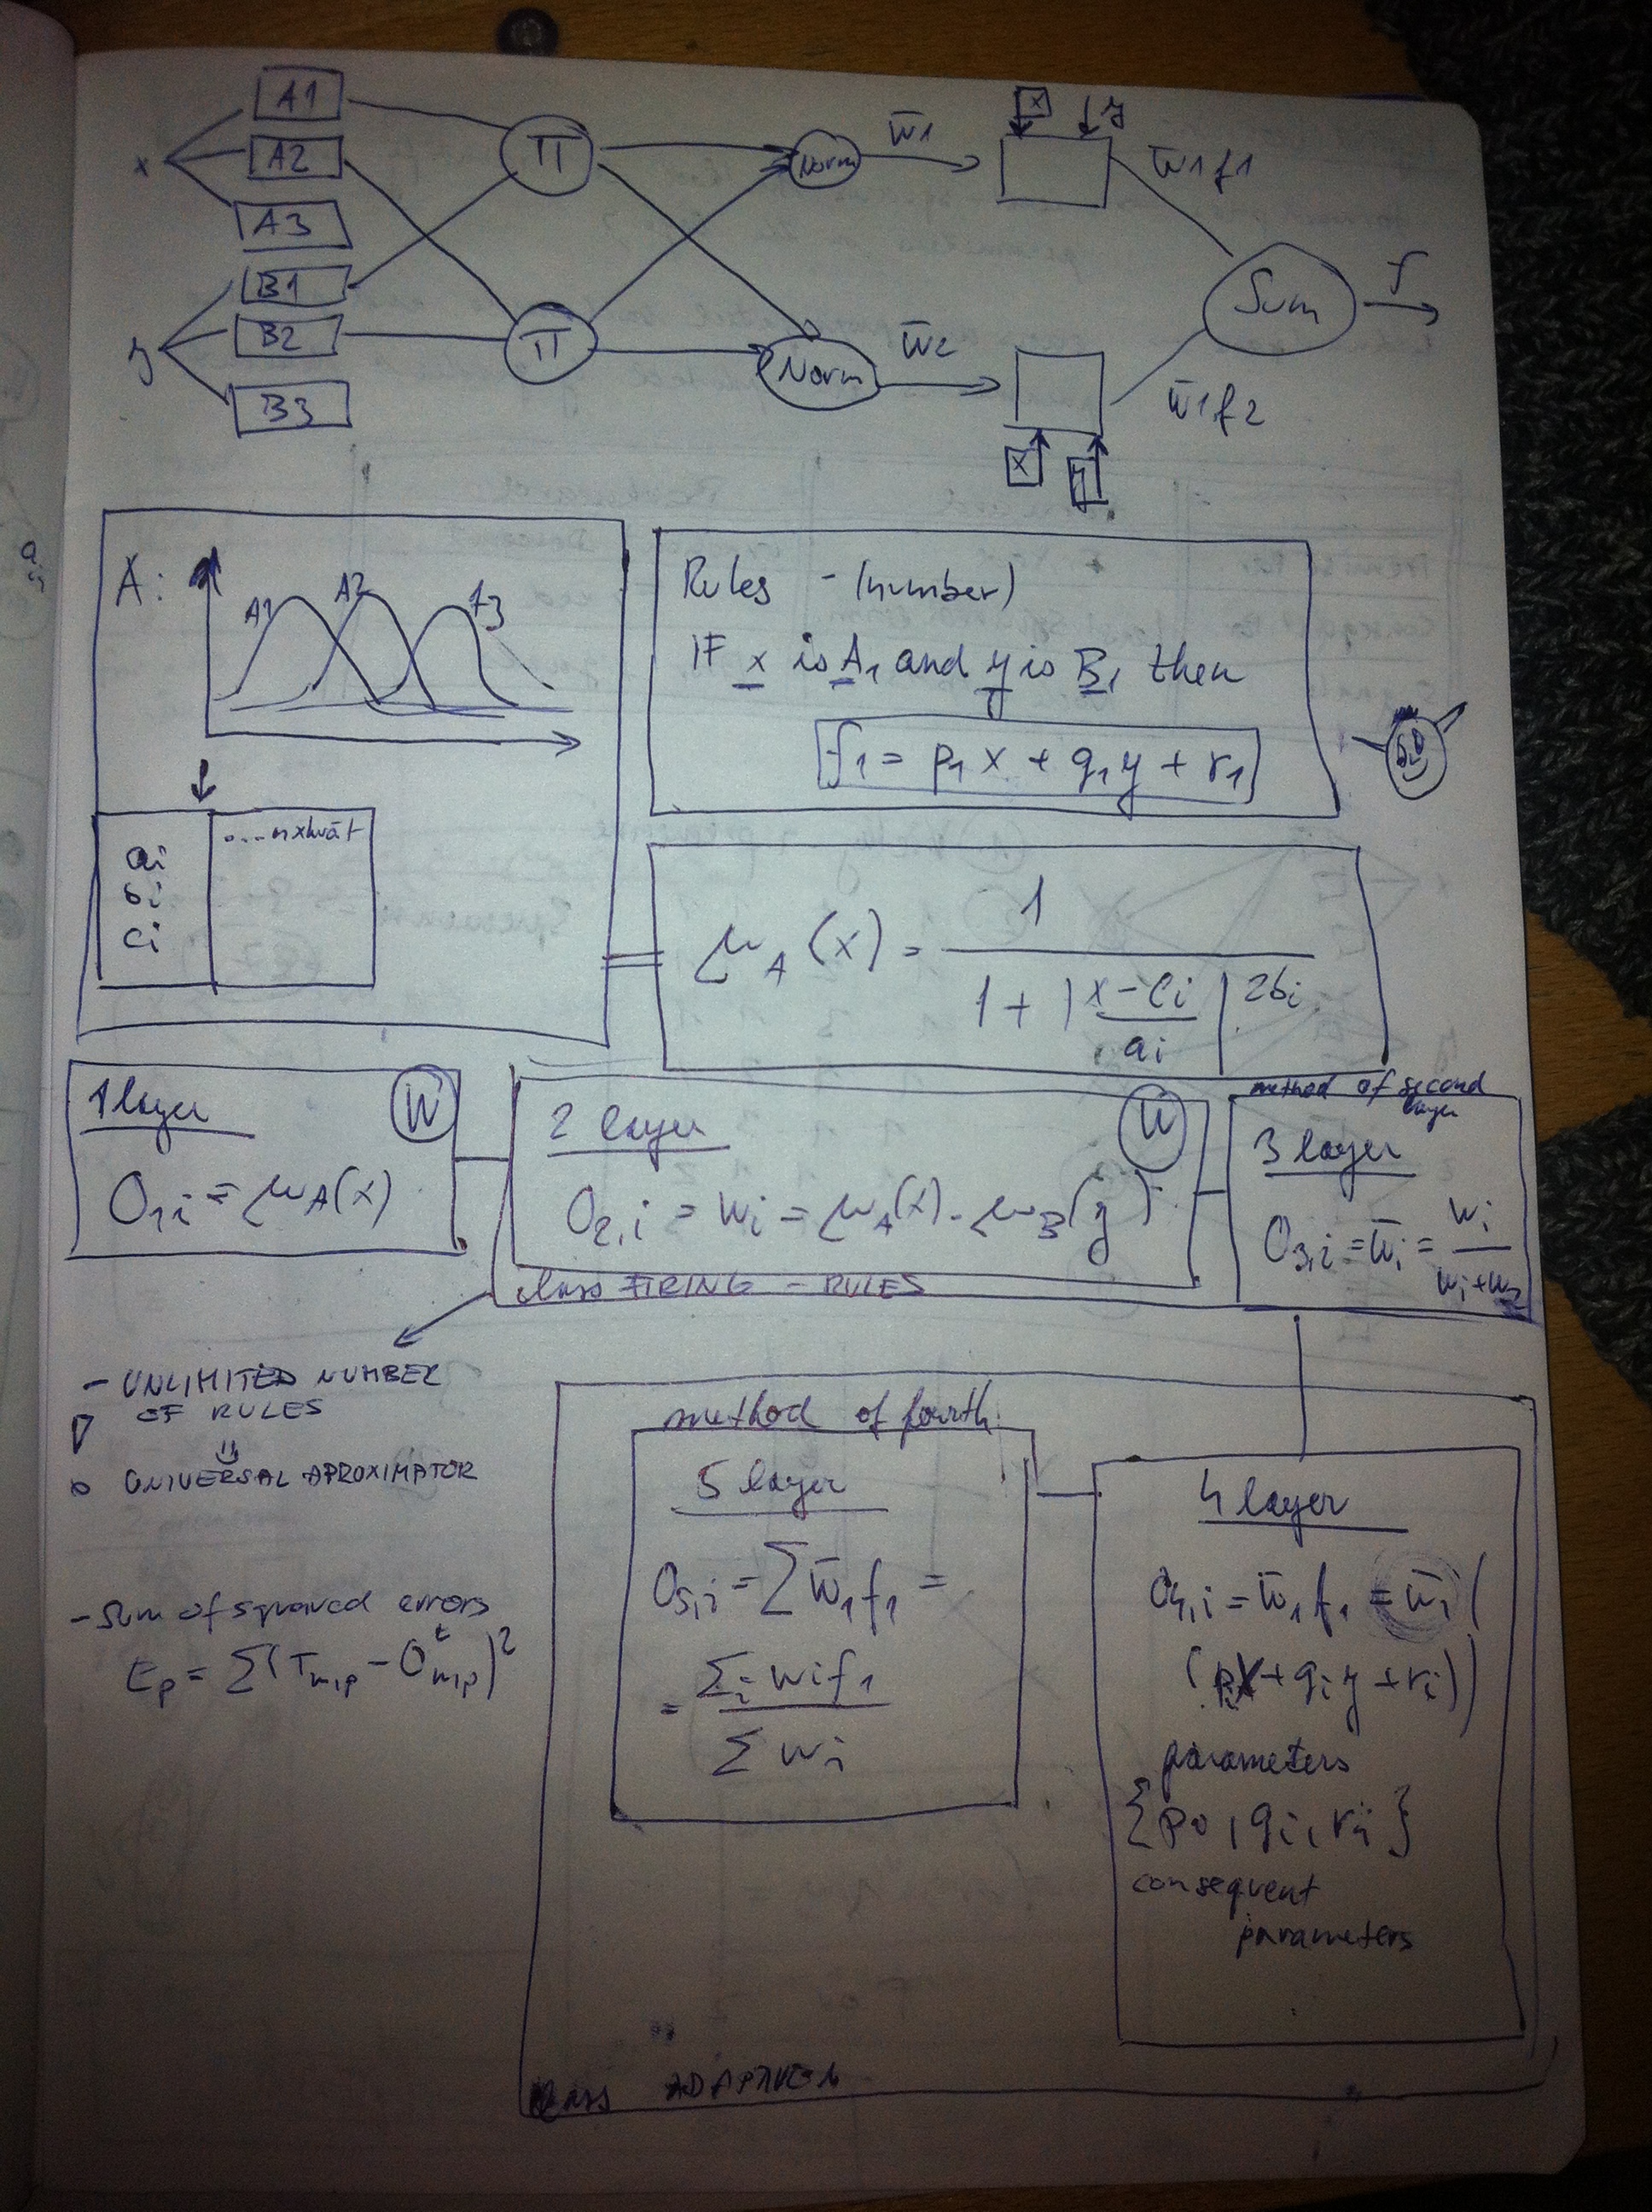 x
A1
A2
A3
y
B1
B2
B3
Π
Π
Norm
Norm
w̅1
w̅2
x
y
w̅1f1
w̅1f2
x
y
Sum
f
A:
A1
A2
A3
ai
bi
ci
Rules - (number)
IF x is A1 and y is B1 then
f1 = p1x + q1y + r1
μA(x) = 1 / (1 + |x-ci / ai|^2bi)
1 layer
W
O1i = μA(x)
2 layer
W
O2,i = wi = μA(x) . μB(y)
class FIRING - RULES
method of second
layer
3 layer
O3,i = w̅i = wi / (wi+w2)
- UNLIMITED NUMBER
OF RULES
UNIVERSAL APROXIMATOR
- Sum of squared errors
Ep = Σ(Tm,p - O^L m,p)^2
method of fourth
5 layer
O5,i = Σ w̅1f1 =
= Σi wif1 / Σ wi
4 layer
O4,i = w̅1f1 = w̅i(
(pix + qiy + ri))
parameters
{pi, qi, ri}
consequent
parameters
class